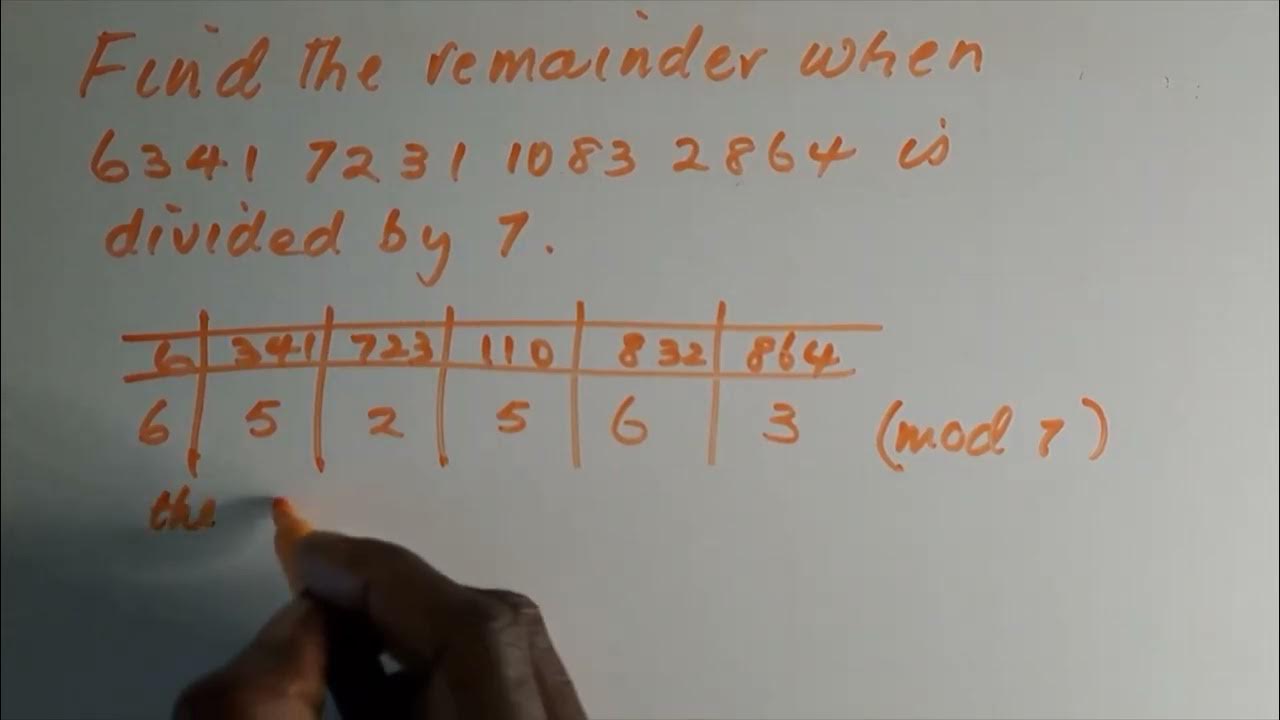 Find the remainder when
6341 7231 1083 2864 is
divided by 7.
6 341 723 110 832 864
6 5 2 5 6 3 (mod 7)
the